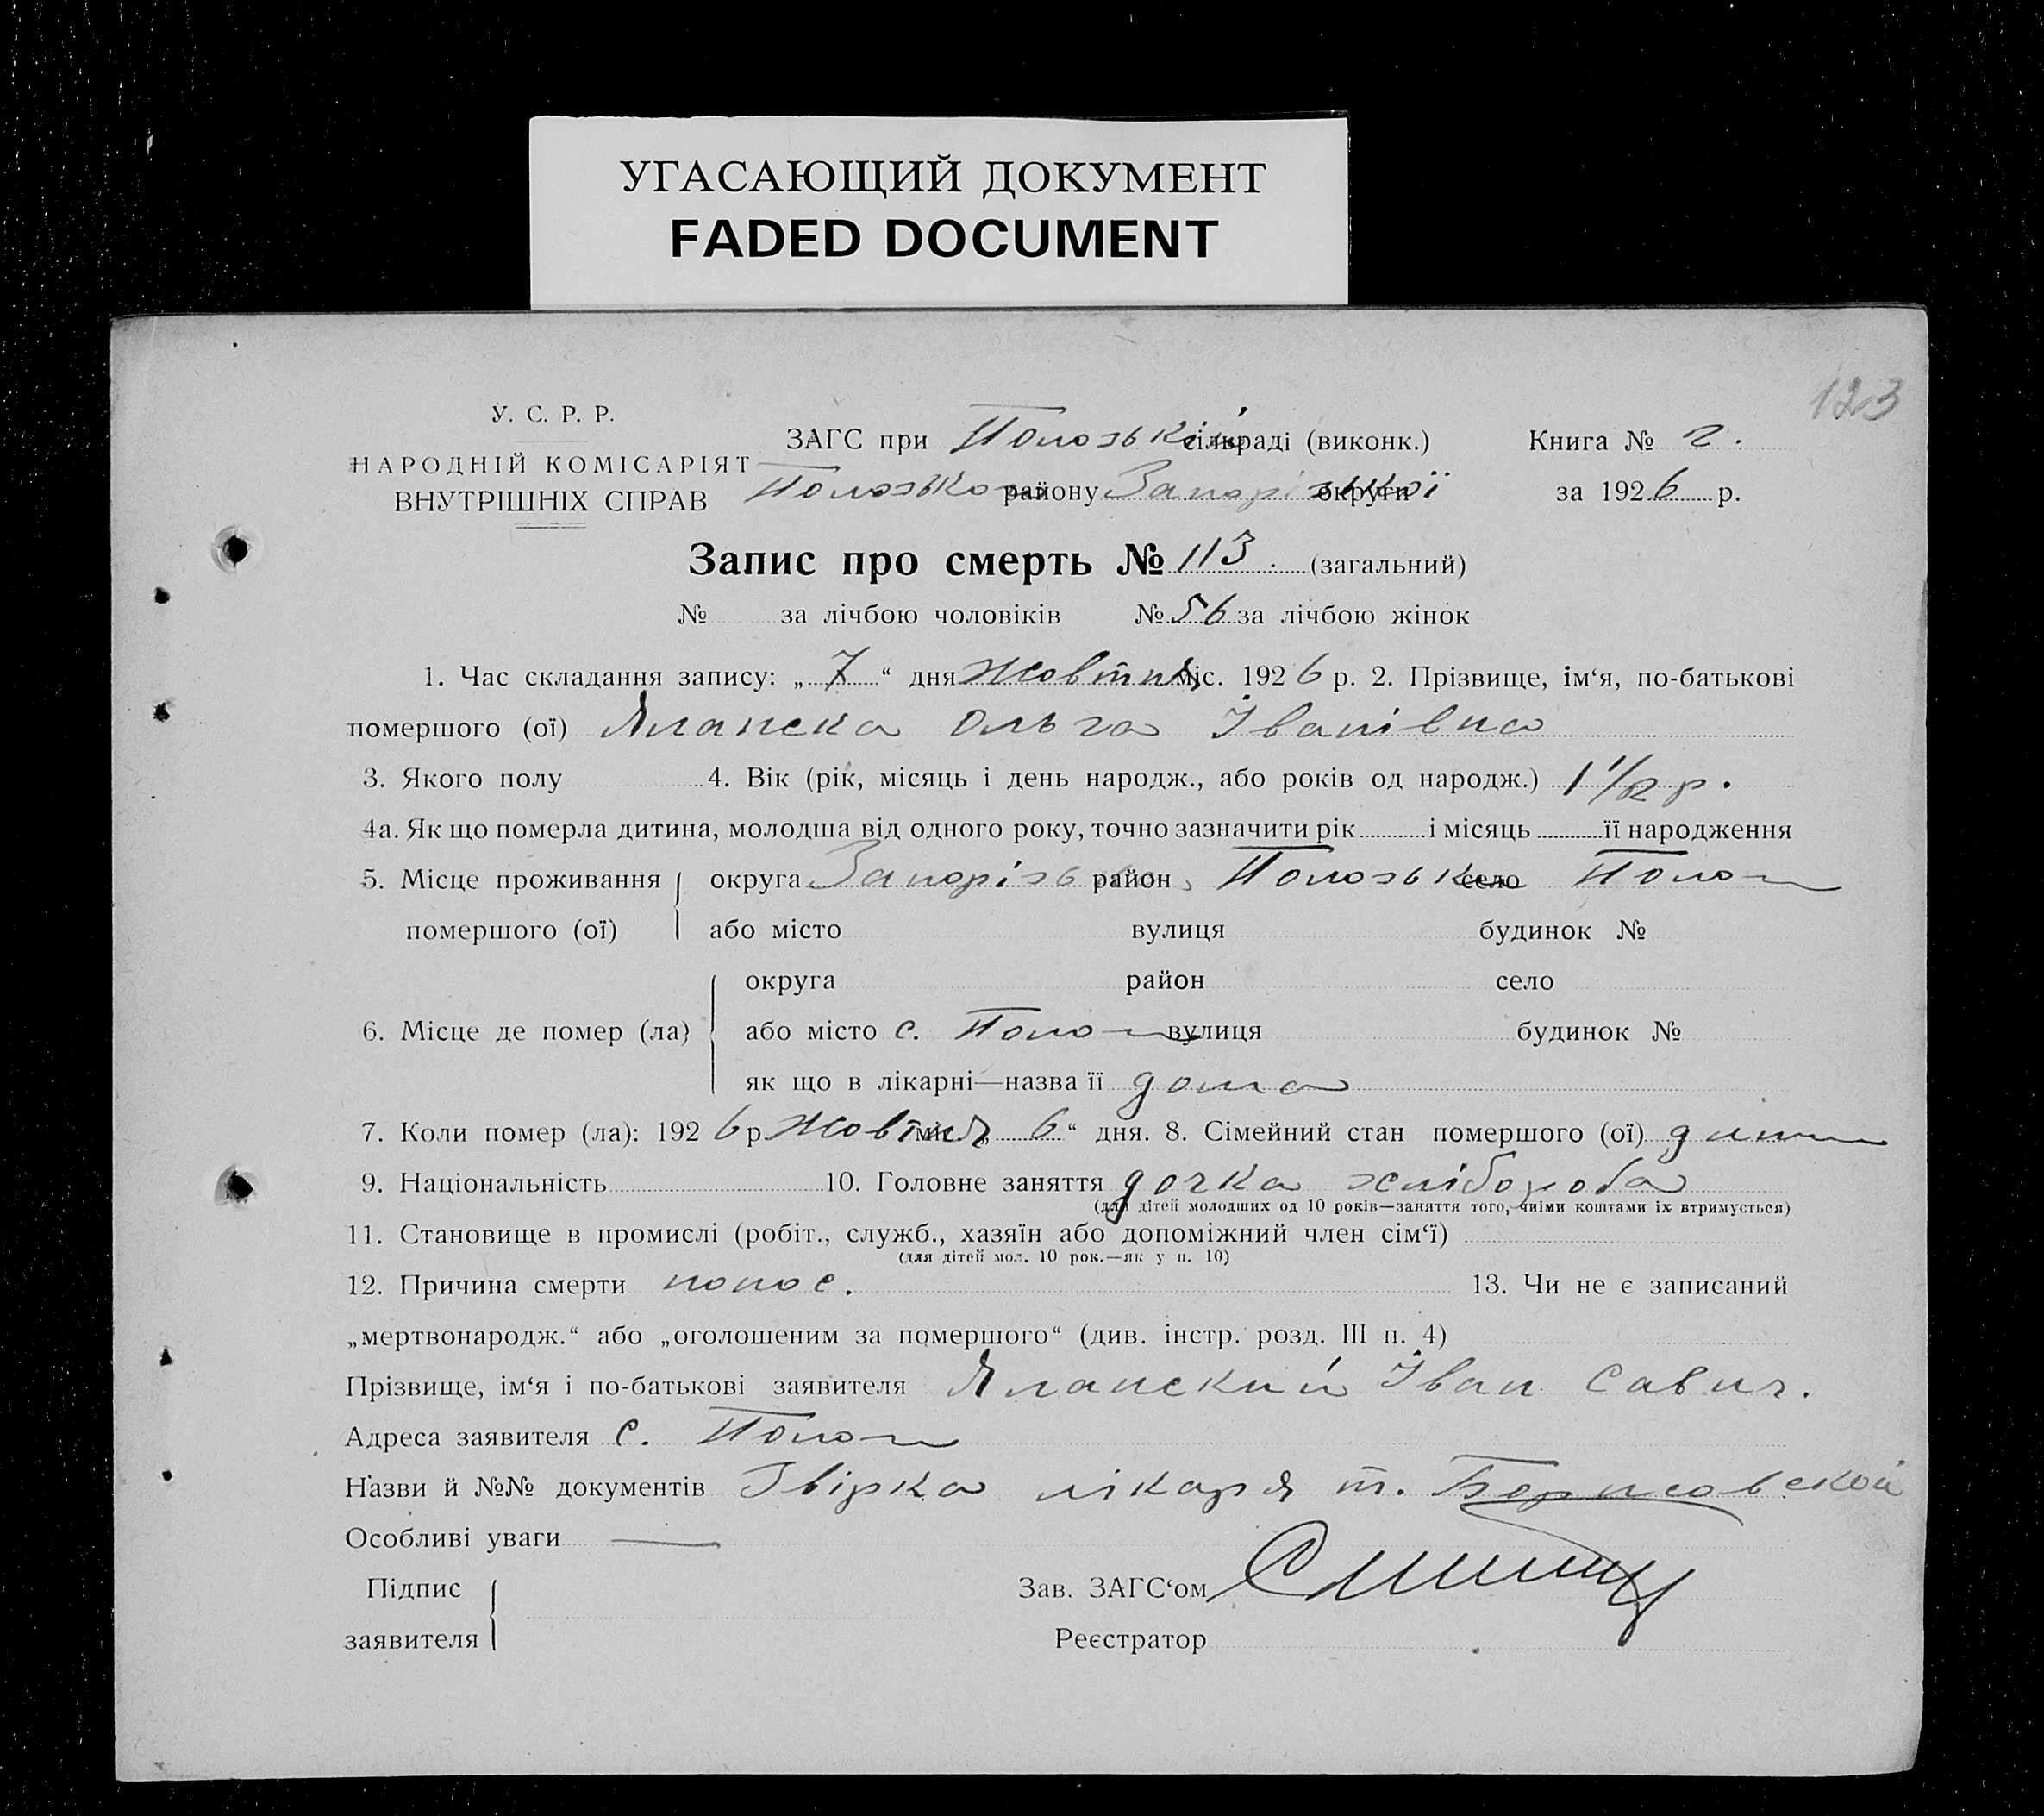 УГАСАЮЩИЙ ДОКУМЕНТ
FADED DOCUMENT
123
У. С. Р. Р.
НАРОДНІЙ КОМІСАРІЯТ
ВНУТРІШНІХ СПРАВ
ЗАГС при Пологській сільраді (виконк.) Книга № 2.
району Запорізької округи за 1926 р.
Запис про смерть № 113. (загальний)
№ за лічбою чоловіків № 56 за лічбою жінок
1. Час складання запису: „7“ дня Жовтня міс. 1926 р. 2. Прізвище, ім‘я, по-батькові
помершого (ої) Яланска Ольга Іванівна
3. Якого полу 4. Вік (рік, місяць і день народж., або років од народж.) 1 1/2 р.
4а. Як що померла дитина, молодша від одного року, точно зазначити рік і місяць її народження
5. Місце проживання округа район село
помершого (ої) або місто вулиця будинок №
округа район село
6. Місце де помер (ла) або місто с. вулиця будинок №
як що в лікарні—назва її дома
7. Коли помер (ла): 1926 р. Жовтня міс. „6“ дня. 8. Сімейний стан помершого (ої)
9. Національність 10. Головне заняття дочка хлібороба
(для дітей молодших од 10 років—заняття того, чиїми коштами їх втримується)
11. Становище в промислі (робіт., служб., хазяїн або допоміжний член сім‘ї)
(для дітей мол. 10 рок.—як у п. 10)
12. Причина смерти понос. 13. Чи не є записаний
„мертвонародж.“ або „оголошеним за помершого“ (див. інстр. розд. III п. 4)
Прізвище, ім‘я і по-батькові заявителя Яланский Іван Савич.
Адреса заявителя с.
Назви й №№ документів лікаря т. Борисовской
Особливі уваги —
Підпис
заявителя
Зав. ЗАГС‘ом
Реєстратор